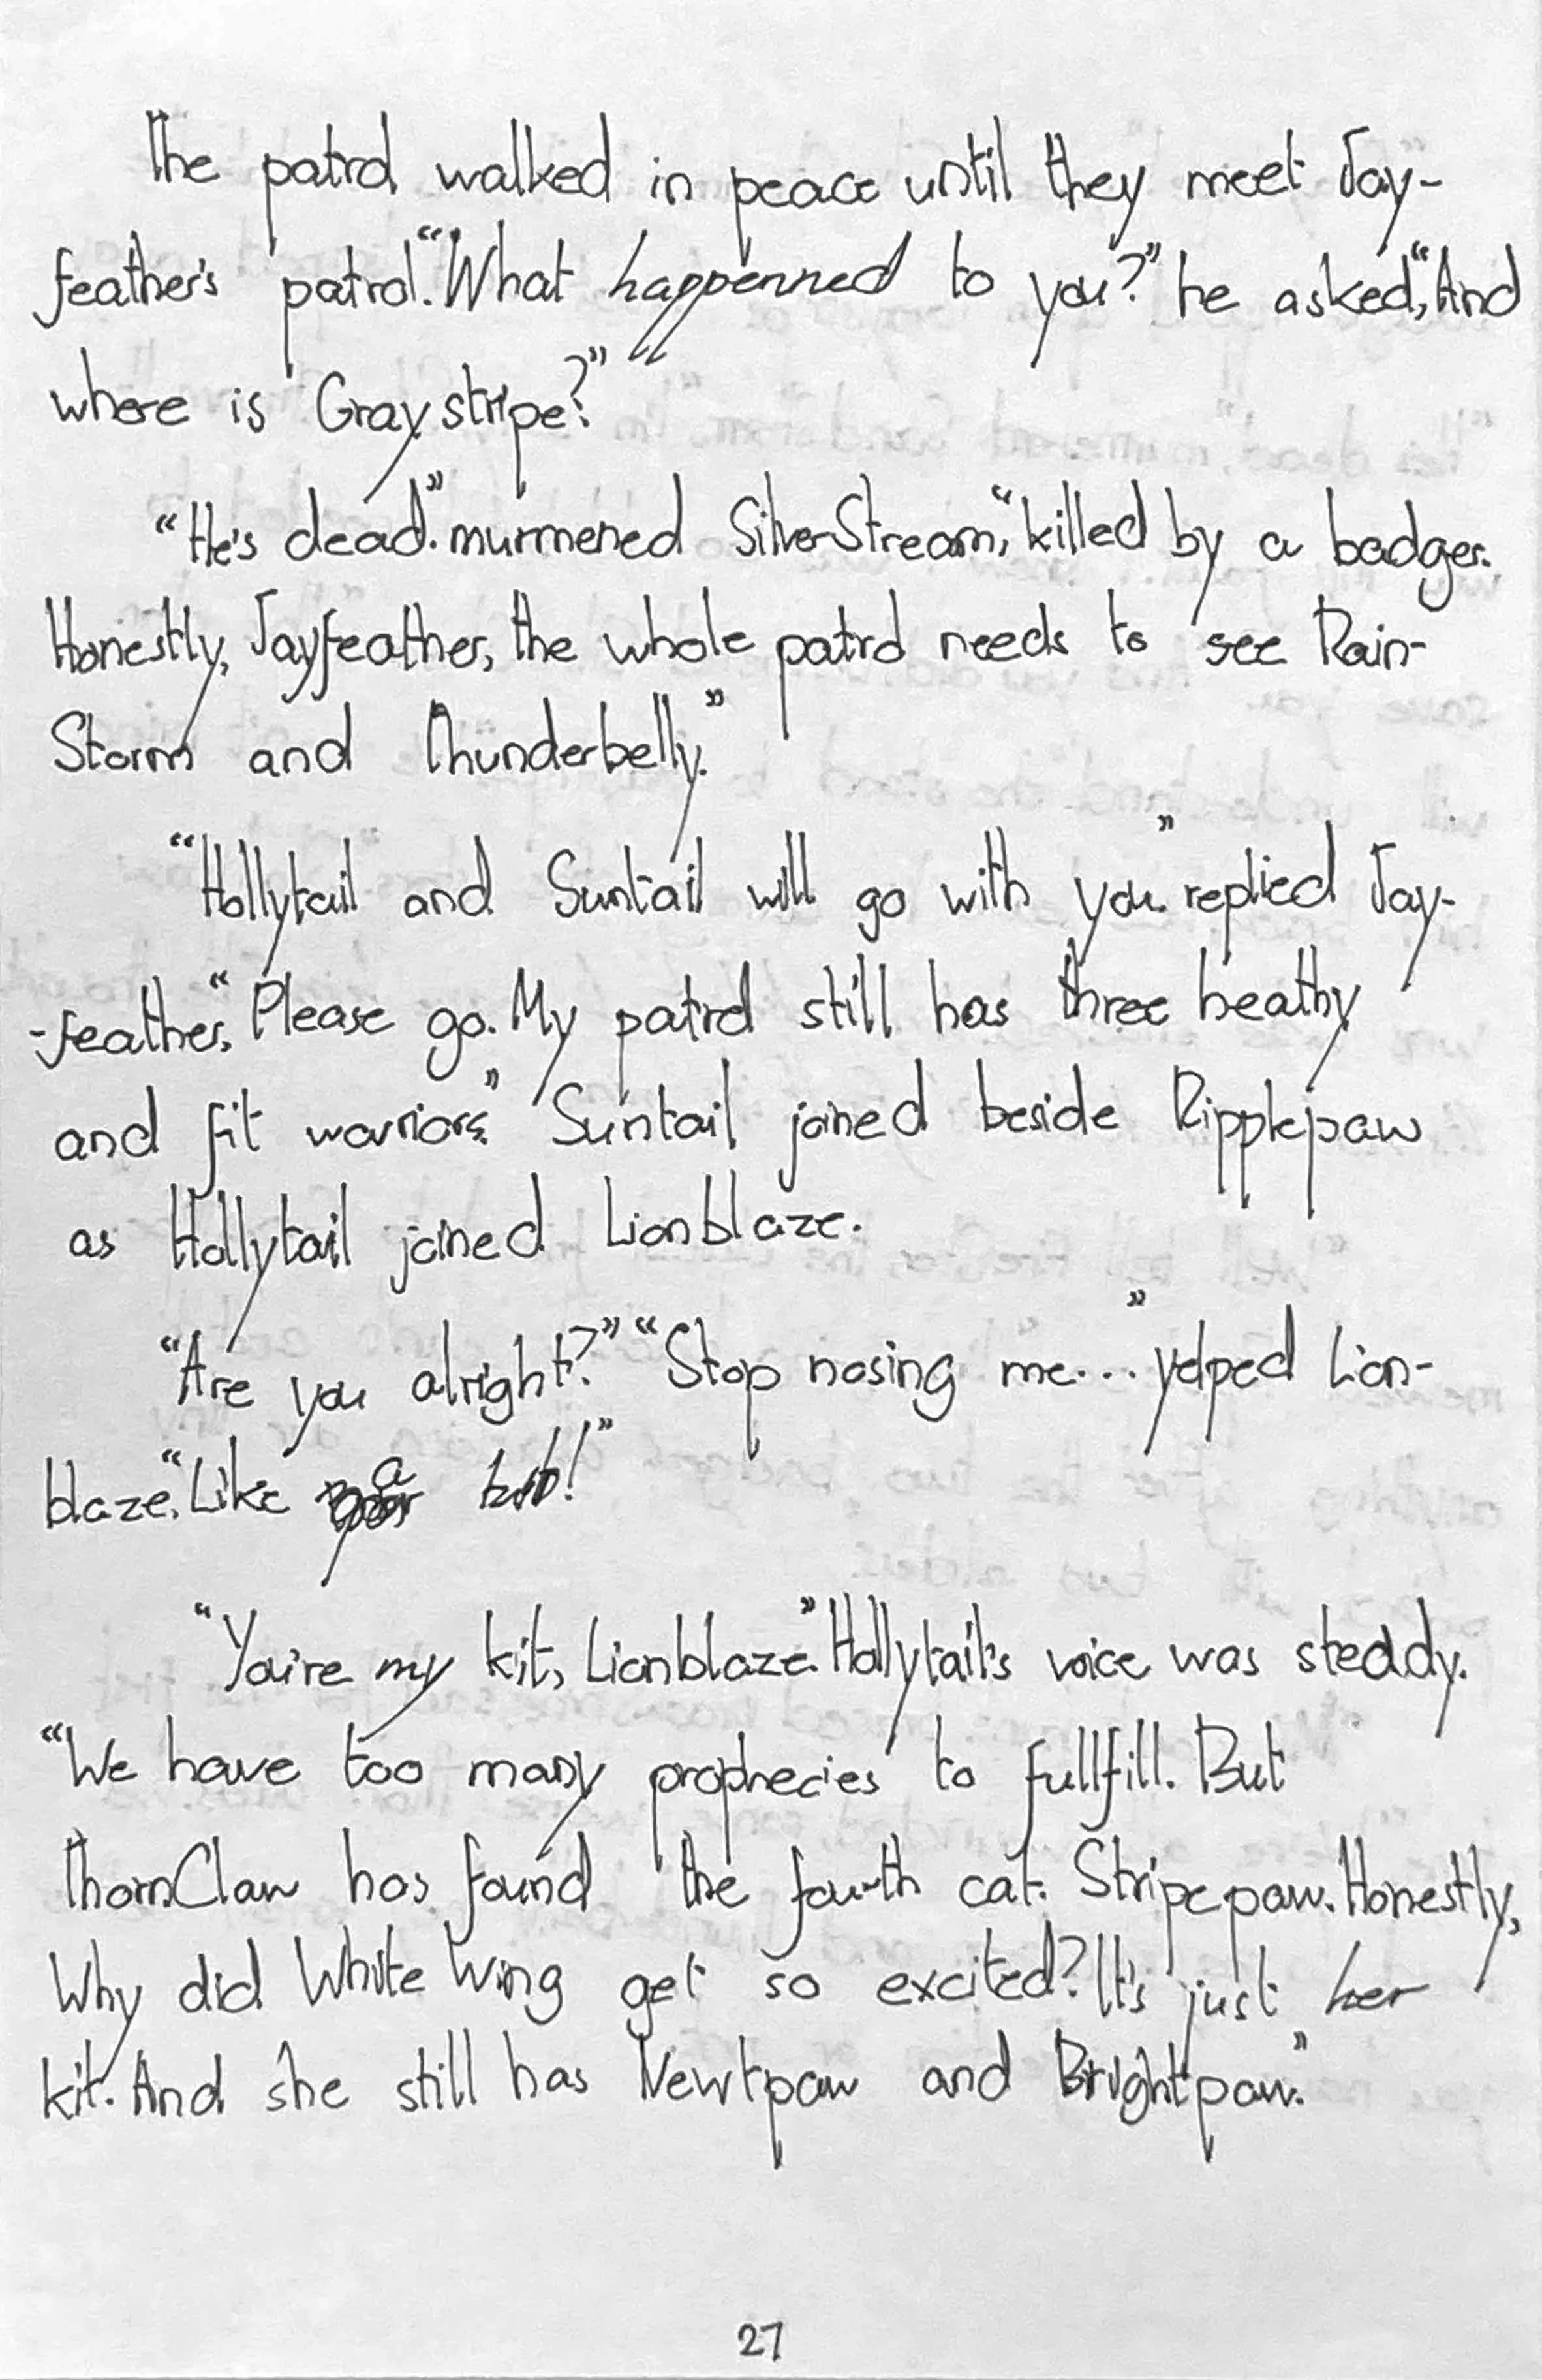 The patrol walked in peace until they meet Jay-
feather's patrol. "What happenned to you?" he asked, "And
where is Graystripe?"
"He's dead." murmered SilverStream, "killed by a badger.
Honestly, Jayfeather, the whole patrol needs to see Rain-
Storm and Thunderbelly."
"Hollytail and Suntail will go with you." replied Jay-
-feather, "Please go. My patrol still has three heathy
and fit warriors." Suntail joined beside Ripplepaw
as Hollytail joined Lionblaze.
"Are you alright?" "Stop nosing me..." yelped Lion-
blaze, "Like a kit!"
"You're my kit, Lionblaze." Hollytail's voice was steddy.
"We have too many prophecies to fullfill. But
ThornClaw has found the fourth cat. Stripepaw. Honestly,
Why did White Wing get so excited? It's just her
kit. And she still has Newtpaw and Brightpaw."
27